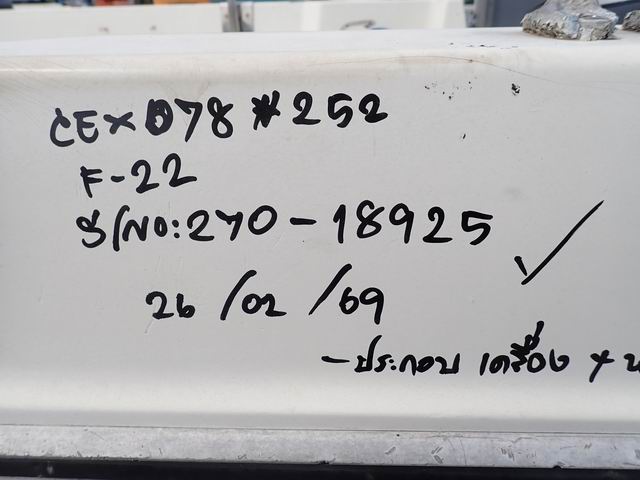 CEX078 *252
F-22
S/NO:270-18925 ✓
26/02/69
-ประกอบ เครื่อง +